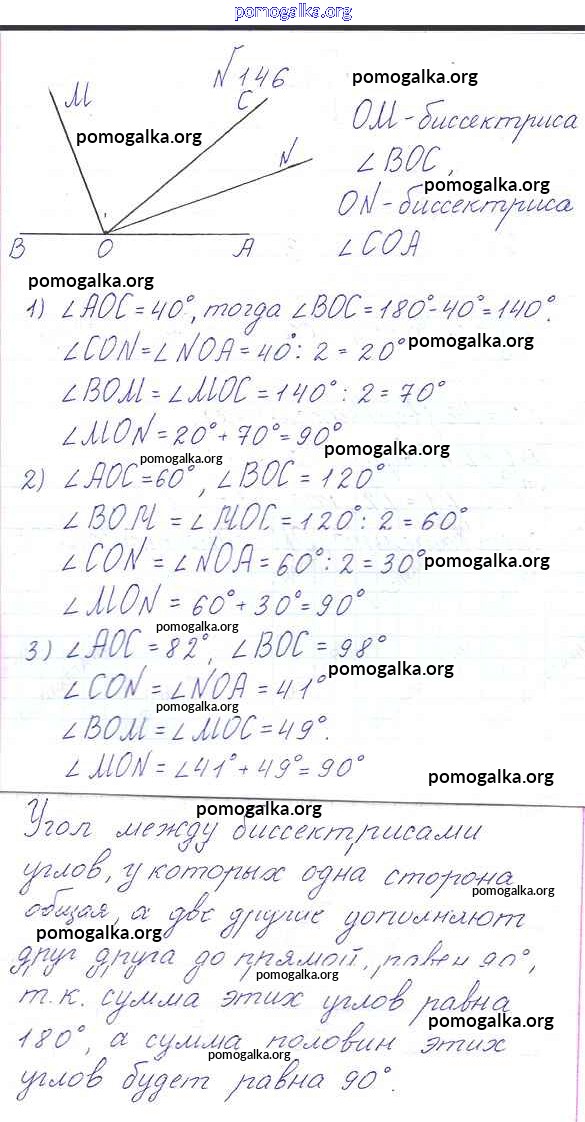 pomogalka.org
N 146
M
C
pomogalka.org
pomogalka.org
OM - биссектриса
∠BOC,
pomogalka.org
N
ON - биссектриса
∠COA
B O A
pomogalka.org
1) ∠AOC = 40°, тогда ∠BOC = 180° - 40° = 140°.
∠CON = ∠NOA = 40° : 2 = 20°
pomogalka.org
∠BOM = ∠MOC = 140° : 2 = 70°
∠MON = 20° + 70° = 90°
pomogalka.org
pomogalka.org
2) ∠AOC = 60°, ∠BOC = 120°
∠BOM = ∠MOC = 120° : 2 = 60°
∠CON = ∠NOA = 60° : 2 = 30°
pomogalka.org
∠MON = 60° + 30° = 90°
pomogalka.org
3) ∠AOC = 82°, ∠BOC = 98°
pomogalka.org
∠CON = ∠NOA = 41°
pomogalka.org
∠BOM = ∠MOC = 49°.
∠MON = ∠41° + 49° = 90°
pomogalka.org
pomogalka.org
Угол между биссектрисами
углов, у которых одна сторона
pomogalka.org
общая, а две другие дополняют
pomogalka.org
друг друга до прямой, равен 90°,
pomogalka.org
т.к. сумма этих углов равна
pomogalka.org
180°, а сумма половин этих
pomogalka.org
углов будет равна 90°.